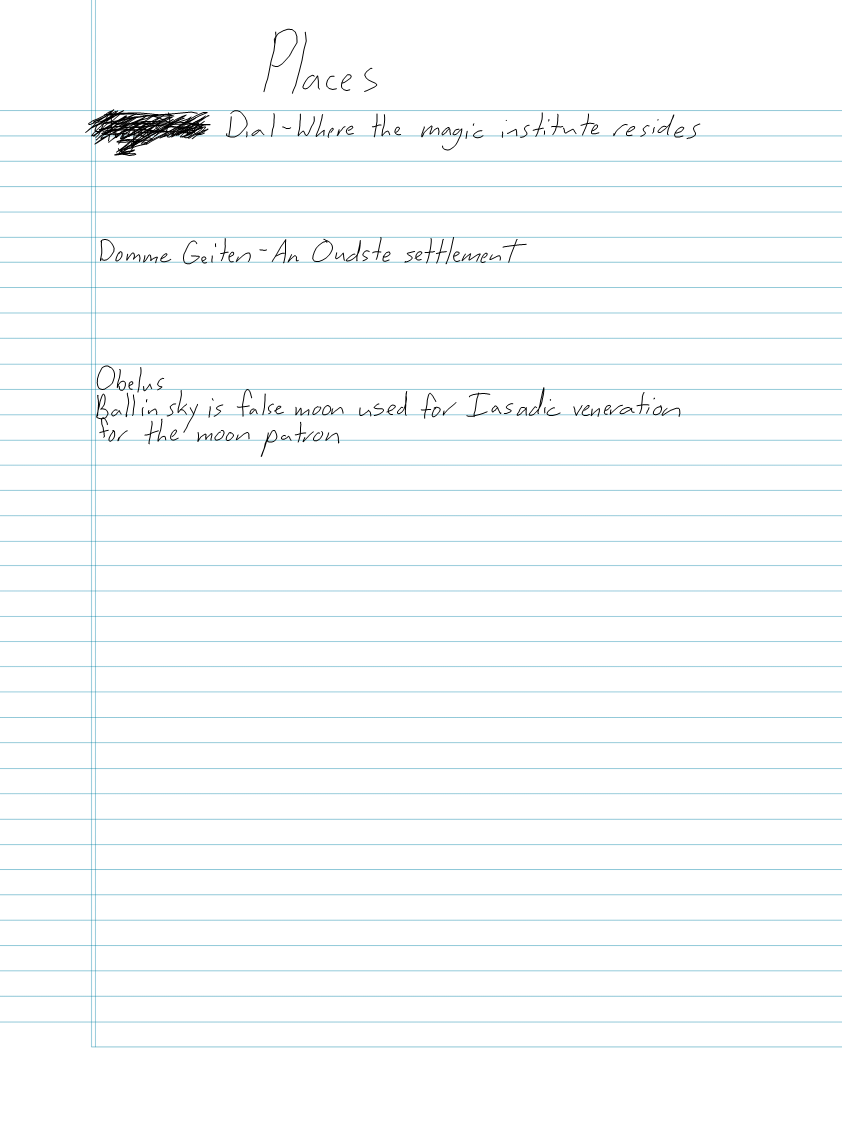 Places
Dial-Where the magic institute resides
Domme Geiten-An Oudste settlement
Obelus
Ball in sky is false moon used for Iasadic veneration
for the moon patron